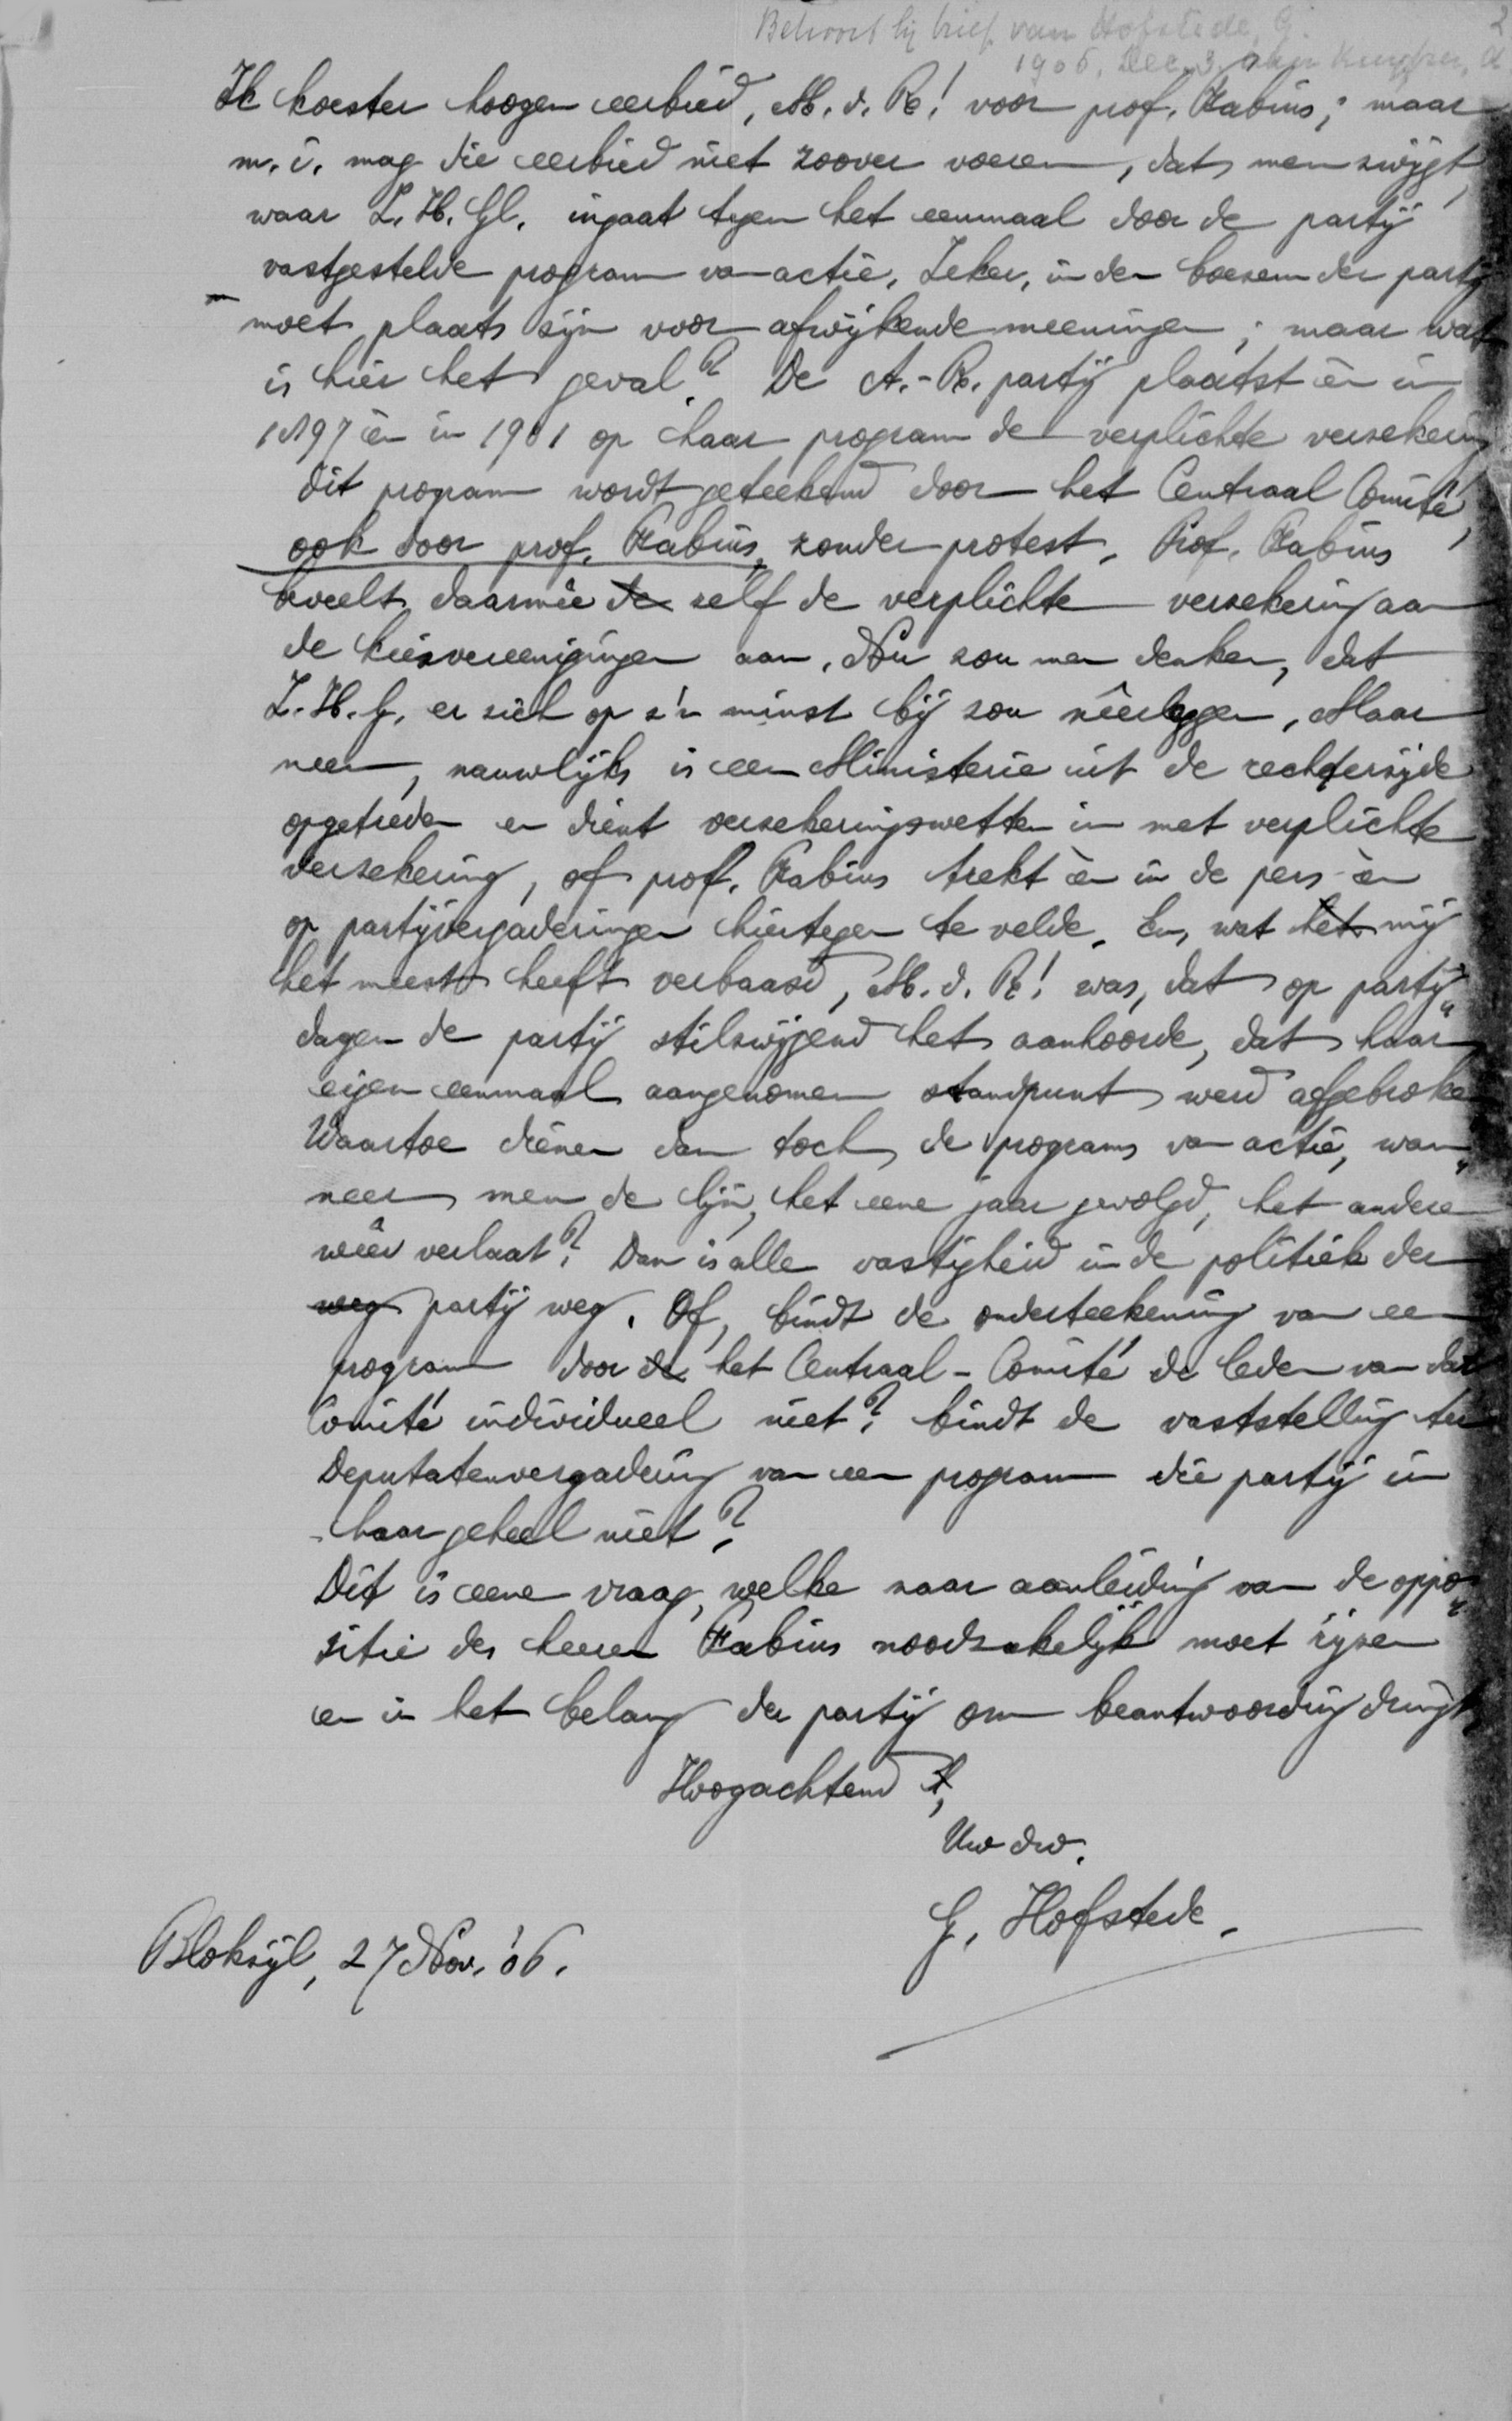 Behoort bij brief van Hofstede, G.
1906, Dec. 3 aan Kuyper, A
Ik koester hoogen eerbied, M. d. R.! voor prof. Fabius; maar
m. i. mag die eerbied niet zoover voeren, dat men zwijgt,
waar Z. H. Gl. ingaat tegen het eenmaal door de partij
vastgestelde program van actie. Zeker, in den boezem der partij
moet plaats zijn voor afwijkende meeningen; maar wat
is hier het geval? De A.-R. partij plaatst èn in
1897 èn in 1901 op haar program de verplichte verzekering
dit program wordt geteekend door het Centraal Comité,
ook door prof. Fabius, zonder protest. Prof. Fabius
beveelt daarmêe de zelf de verplichte verzekering aan
de kiesvereenigingen aan. Nu zou men denken, dat
Z. H. G. er zich op z'n minst bij zou nêerleggen. Maar
neen, nauwlijks is een Ministerie uit de rechterzijde
opgetreden en dient verzekeringswetten in met verplichte
verzekering, of prof. Fabius trekt èn in de pers èn
op partijvergaderingen hiertegen te velde. En, wat het mij
het meest heeft verbaasd, M. d. R.! was, dat op partij„
dagen de partij stilzwijgend het aanhoorde, dat haar
eigen eenmaal aangenomen standpunt werd afgebroken
Waartoe dienen dan toch de programs van actie, wan„
neer men de lijn, het eene jaar gevolgd, het andere
wêer verlaat? Dan is alle vastigheid in de politiek der
weg partij weg. Of, bindt de onderteekening van een
program door de het Centraal-Comité de leden van dat
Comité individueel niet? bindt de vaststelling ter
Deputatenvergadering van een program die partij in
haar geheel niet?
Dit is eene vraag, welke naar aanleiding van de oppo„
sitie des heeren Fabius noodzakelijk moet rijzen
en in het belang der partij om beantwoording dringt
Hoogachtend,
Uw dw.
G. Hofstede.
Blokzijl, 27 Nov. '06.